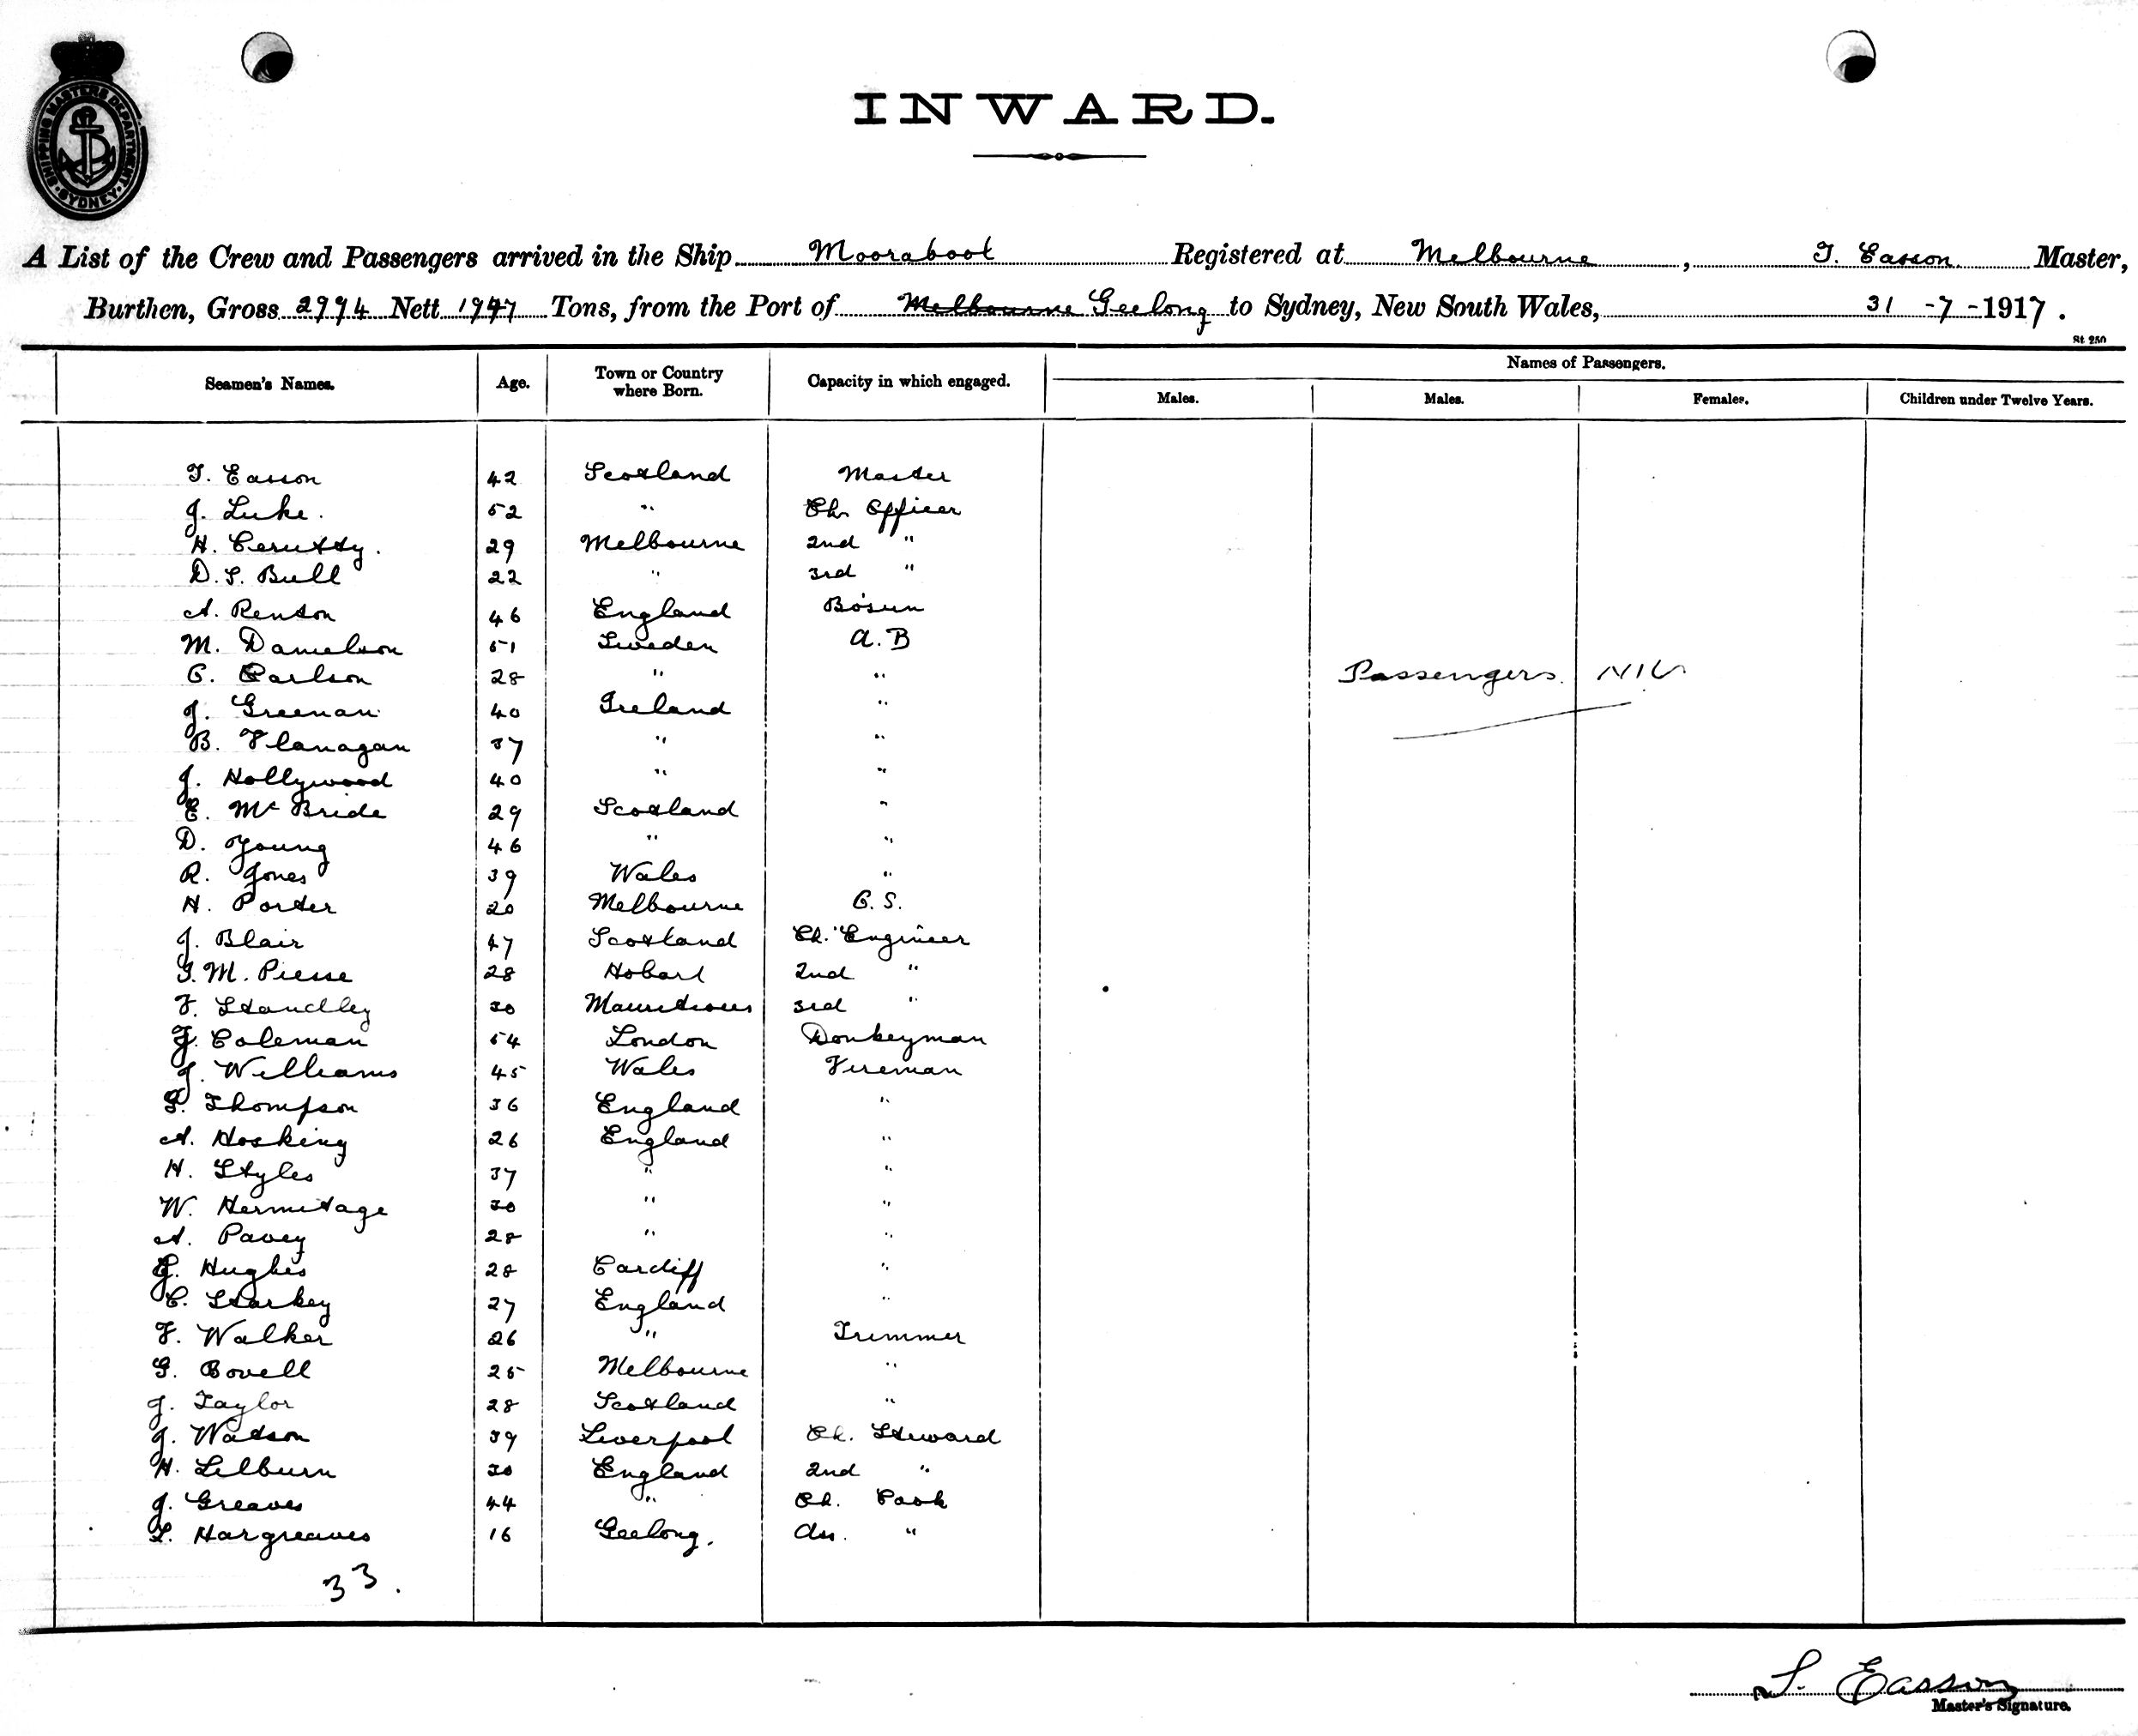 SHIPPING MASTERS DEPARTMENT
SYDNEY
INWARD.
A List of the Crew and Passengers arrived in the Ship Moorabool Registered at Melbourne, T. Easson Master,
Burthen, Gross 2994 Nett Tons, from the Port of Melbourne Geelong to Sydney, New South Wales, 31-7-1917.
St 250
Seamen's Names. Age. Town or Country where Born. Capacity in which engaged. Names of Passengers.
Males. Males. Females. Children under Twelve Years.
T. Easson 42 Scotland Master
J. Luke. 52 " Ch. Officer
H. Cerutty. 29 Melbourne 2nd "
D. S. Bull 22 " 3rd "
A. Renton 46 England Bosun
M. Danielson 51 Sweden A. B
C. Carlson 28 " " Passengers NIL
J. Greenan 40 Ireland "
B. Flanagan 37 " "
J. Hollywood 40 " "
E. McBride 29 Scotland "
D. Young 46 " "
R. Jones 39 Wales "
H. Porter 20 Melbourne O. S.
J. Blair 47 Scotland Ch. Engineer
G. M. Piesse 28 Hobart 2nd "
F. Standley 30 Mauritious 3rd "
J. Coleman 54 London Donkeyman
J. Williams 45 Wales Fireman
G. Thompson 36 England "
A. Hosking 26 England "
H. Styles 37 " "
W. Hermitage 30 " "
A. Pavey 28 " "
G. Hughes 28 Cardiff "
C. Starkey 27 England "
F. Walker 26 " Trimmer
G. Bovell 25 Melbourne "
J. Taylor 28 Scotland "
J. Watson 39 Liverpool Ch. Steward
H. Lilburn 30 England 2nd "
J. Greaves 44 " Ch. Cook
L. Hargreaves 16 Geelong. "
33.
T. Easson
Master's Signature.